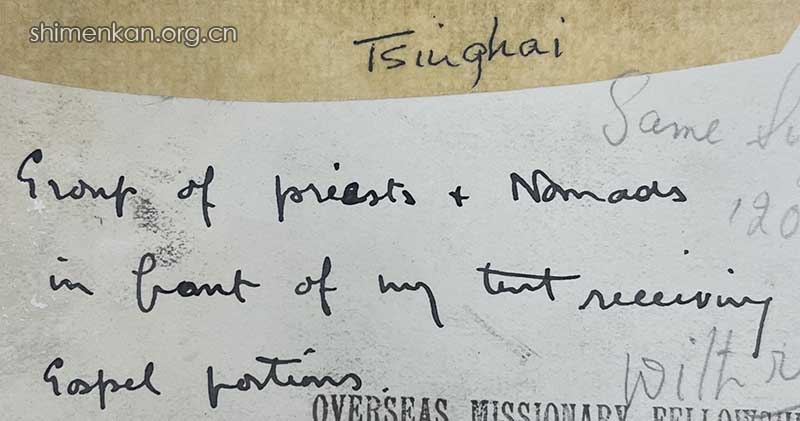 shimenkan.org.cn
Tsinghai
Same
Group of priests + Nomads
'20
in front of my tent receiving
Gospel portions.
With
OVERSEAS MISSIONARY FELLOWSHIP